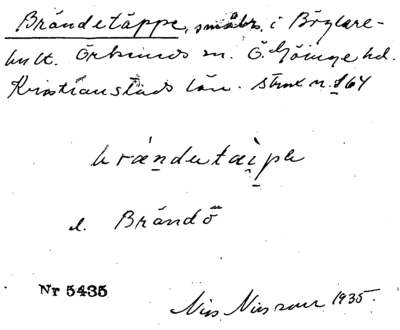 Brändetäppe, småbr. i Böglare-
hult. Örkeneds sn. Ö. Göinge hd.
Kristianstads län. strux nr. 164
brändetäipe
d. Brändö
Nr 5435
Nils Nilsson 1935.